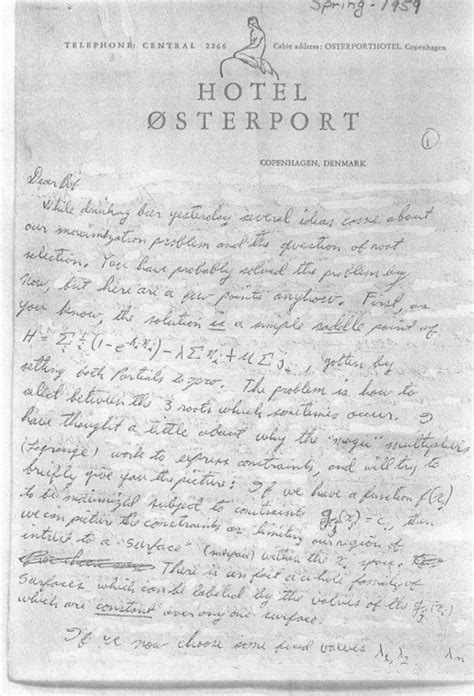 Spring - 1959
TELEPHONE: CENTRAL 2266 Cable address: OSTERPORTHOTEL. Copenhagen
HOTEL
ØSTERPORT
①
COPENHAGEN, DENMARK
Dear Bob
While drinking beer yesterday several ideas came about
our maximization problem and the question of root
selection. You have probably solved the problem by
now, but here are a few points anyhow. First, as
you know, the solution is a simple saddle point of
H = Σ (1-e ) - λ Σ + μ Σ , gotten by
setting both Partials to zero. The problem is how to
select between the 3 roots which sometimes occur. I
have thought a little about why the "magic" multipliers
(Lagrange) work to express constraints, and will try to
briefly give you the picture: If we have a function f(x_i)
to be maximized subject to constraints g_j(x_i) = c_j, then
we can picture the constraints as limiting our region of
interest to a "surface" within the x_i space.
There is in fact a whole family of
surfaces which can be labeled by the values of the g_j(x_i)
which are constant over any one surface.
If we now choose some fixed values λ₁, λ₂ λn